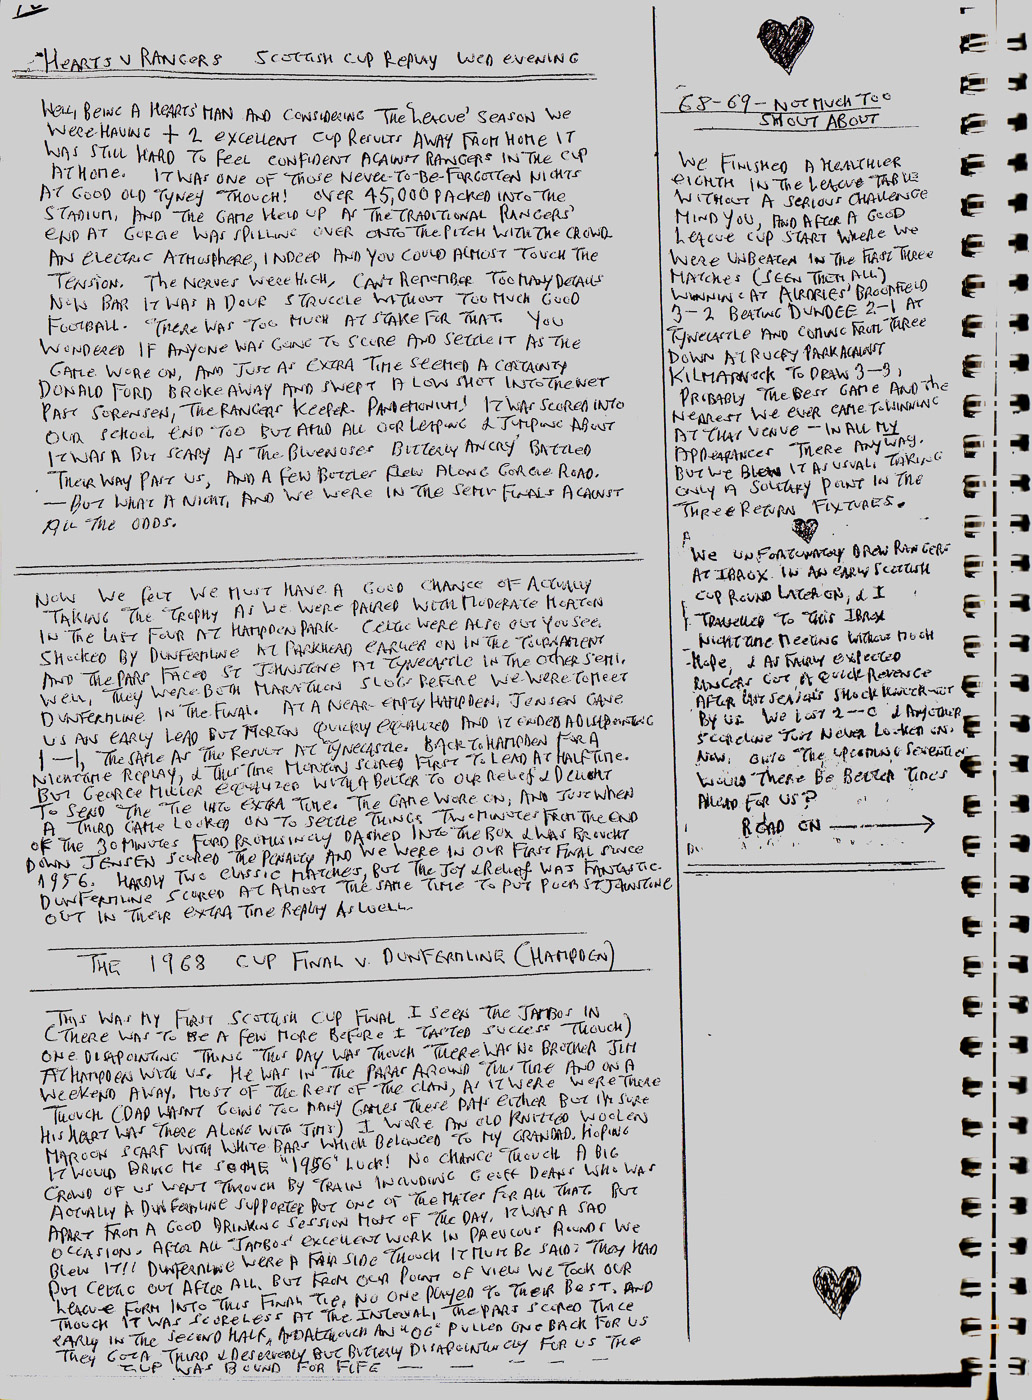 Hearts v Rangers Scottish Cup Replay Wed evening
Well, being a Hearts man and considering the 'League' season we
were having + 2 excellent cup results away from home it
was still hard to feel confident against Rangers in the cup
at home. It was one of those never-to-be-forgotten nights
at good old Tyney though! Over 45,000 packed into the
stadium, and the game held up as the traditional Rangers'
end at Gorgie was spilling over onto the pitch with the crowd
An electric atmosphere, indeed and you could almost touch the
tension. The nerves were high, can't remember too many details
now bar it was a dour struggle without too much good
football. There was too much at stake for that. You
wondered if anyone was going to score and settle it as the
game wore on, and just as extra time seemed a certainty
Donald Ford broke away and swept a low shot into the net
past Sorensen, the Rangers keeper. Pandemonium! It was scored into
our school end too but amid all our leaping & jumping about
it was a bit scary as the bluenoses bitterly angry battled
their way past us, and a few bottles flew along Gorgie Road.
— But what a night, and we were in the semi finals against
all the odds.
Now we felt we must have a good chance of actually
taking the trophy as we were paired with moderate Morton
in the last four at Hampden Park. Celtic were also out you see.
Shocked by Dunfermline at Parkhead earlier on in the tournament
and the Pars faced St Johnstone at Tynecastle in the other semi.
Well, they were both marathon slogs before we were to meet
Dunfermline in the final. At a near-empty Hampden, Jensen gave
us an early lead but Morton quickly equalized and it ended a disapointing
1–1, the same as the result at Tynecastle. Back to Hampden for a
nightime replay, & this time Morton scored first to lead at half time.
But George Miller equalized with a belter to our relief & delight
to send the tie into extra time. The game wore on, and just when
a third game looked on to settle things two minutes from the end
of the 30 minutes Ford promisingly dashed into the box & was brought
down Jensen scored the penalty and we were in our first final since
1956. Hardly two classic matches, but the joy & relief was fantastic.
Dunfermline scored at almost the same time to put poor St Johnstone
out in their extra time replay as well.
The 1968 Cup Final v. Dunfermline (Hampden)
This was my first Scottish Cup Final I seen the Jambos in
(there was to be a few more before I tasted success though)
One disapointing thing this day was though there was no brother Jim
at Hampden with us. He was in the Paras around this time and on a
weekend away. Most of the rest of the clan, as it were were there
though (Dad wasnt going too many games these days either but I'm sure
his heart was there along with Jim's) I wore an old knitted woolen
maroon scarf with white bars which belonged to my grandad. Hoping
it would bring me some "1956" luck! No chance though a big
crowd of us went through by train including Geoff Deans who was
actually a Dunfermline supporter but one of the mates for all that. But
apart from a good drinking session most of the day, it was a sad
occasion. After all 'Jambos' excellent work in previous rounds we
blew it!! Dunfermline were a fair side though it must be said: they had
put Celtic out after all. But from our point of view we took our
league form into this final tie, no one played to their best. And
though it was scoreless at the interval, the Pars scored twice
early in the second half, and although an 'OG' pulled one back for us
they got a third & deservedly but bitterly disapointingly for us the
cup was bound for Fife — — — —
68–69 – Not much too
shout about
We finished a healthier
eighth in the league table
without a serious challenge
mind you, and after a good
League Cup start where we
were unbeaten in the first three
matches (seen them all)
winning at Airdries' Broomfield
3–2 beating Dundee 2–1 at
Tynecastle and coming from three
down at Rugby Park against
Kilmarnock to draw 3–3,
probably the best game and the
nearest we ever came to winning
at that venue – in all my
appearances there anyway.
But we blew it as usual: taking
only a solitary point in the
three return fixtures.
We unfortunately drew Rangers
at Ibrox in an early Scottish
Cup round later on, & I
travelled to this Ibrox
nightime meeting without much
hope, & as fairly expected
Rangers got a quick revenge
after last season's shock knock-out
by us. We lost 2–0 & any other
scoreline just never looked on.
Now, onto the upcoming seventies
would there be better times
ahead for us?
Read on